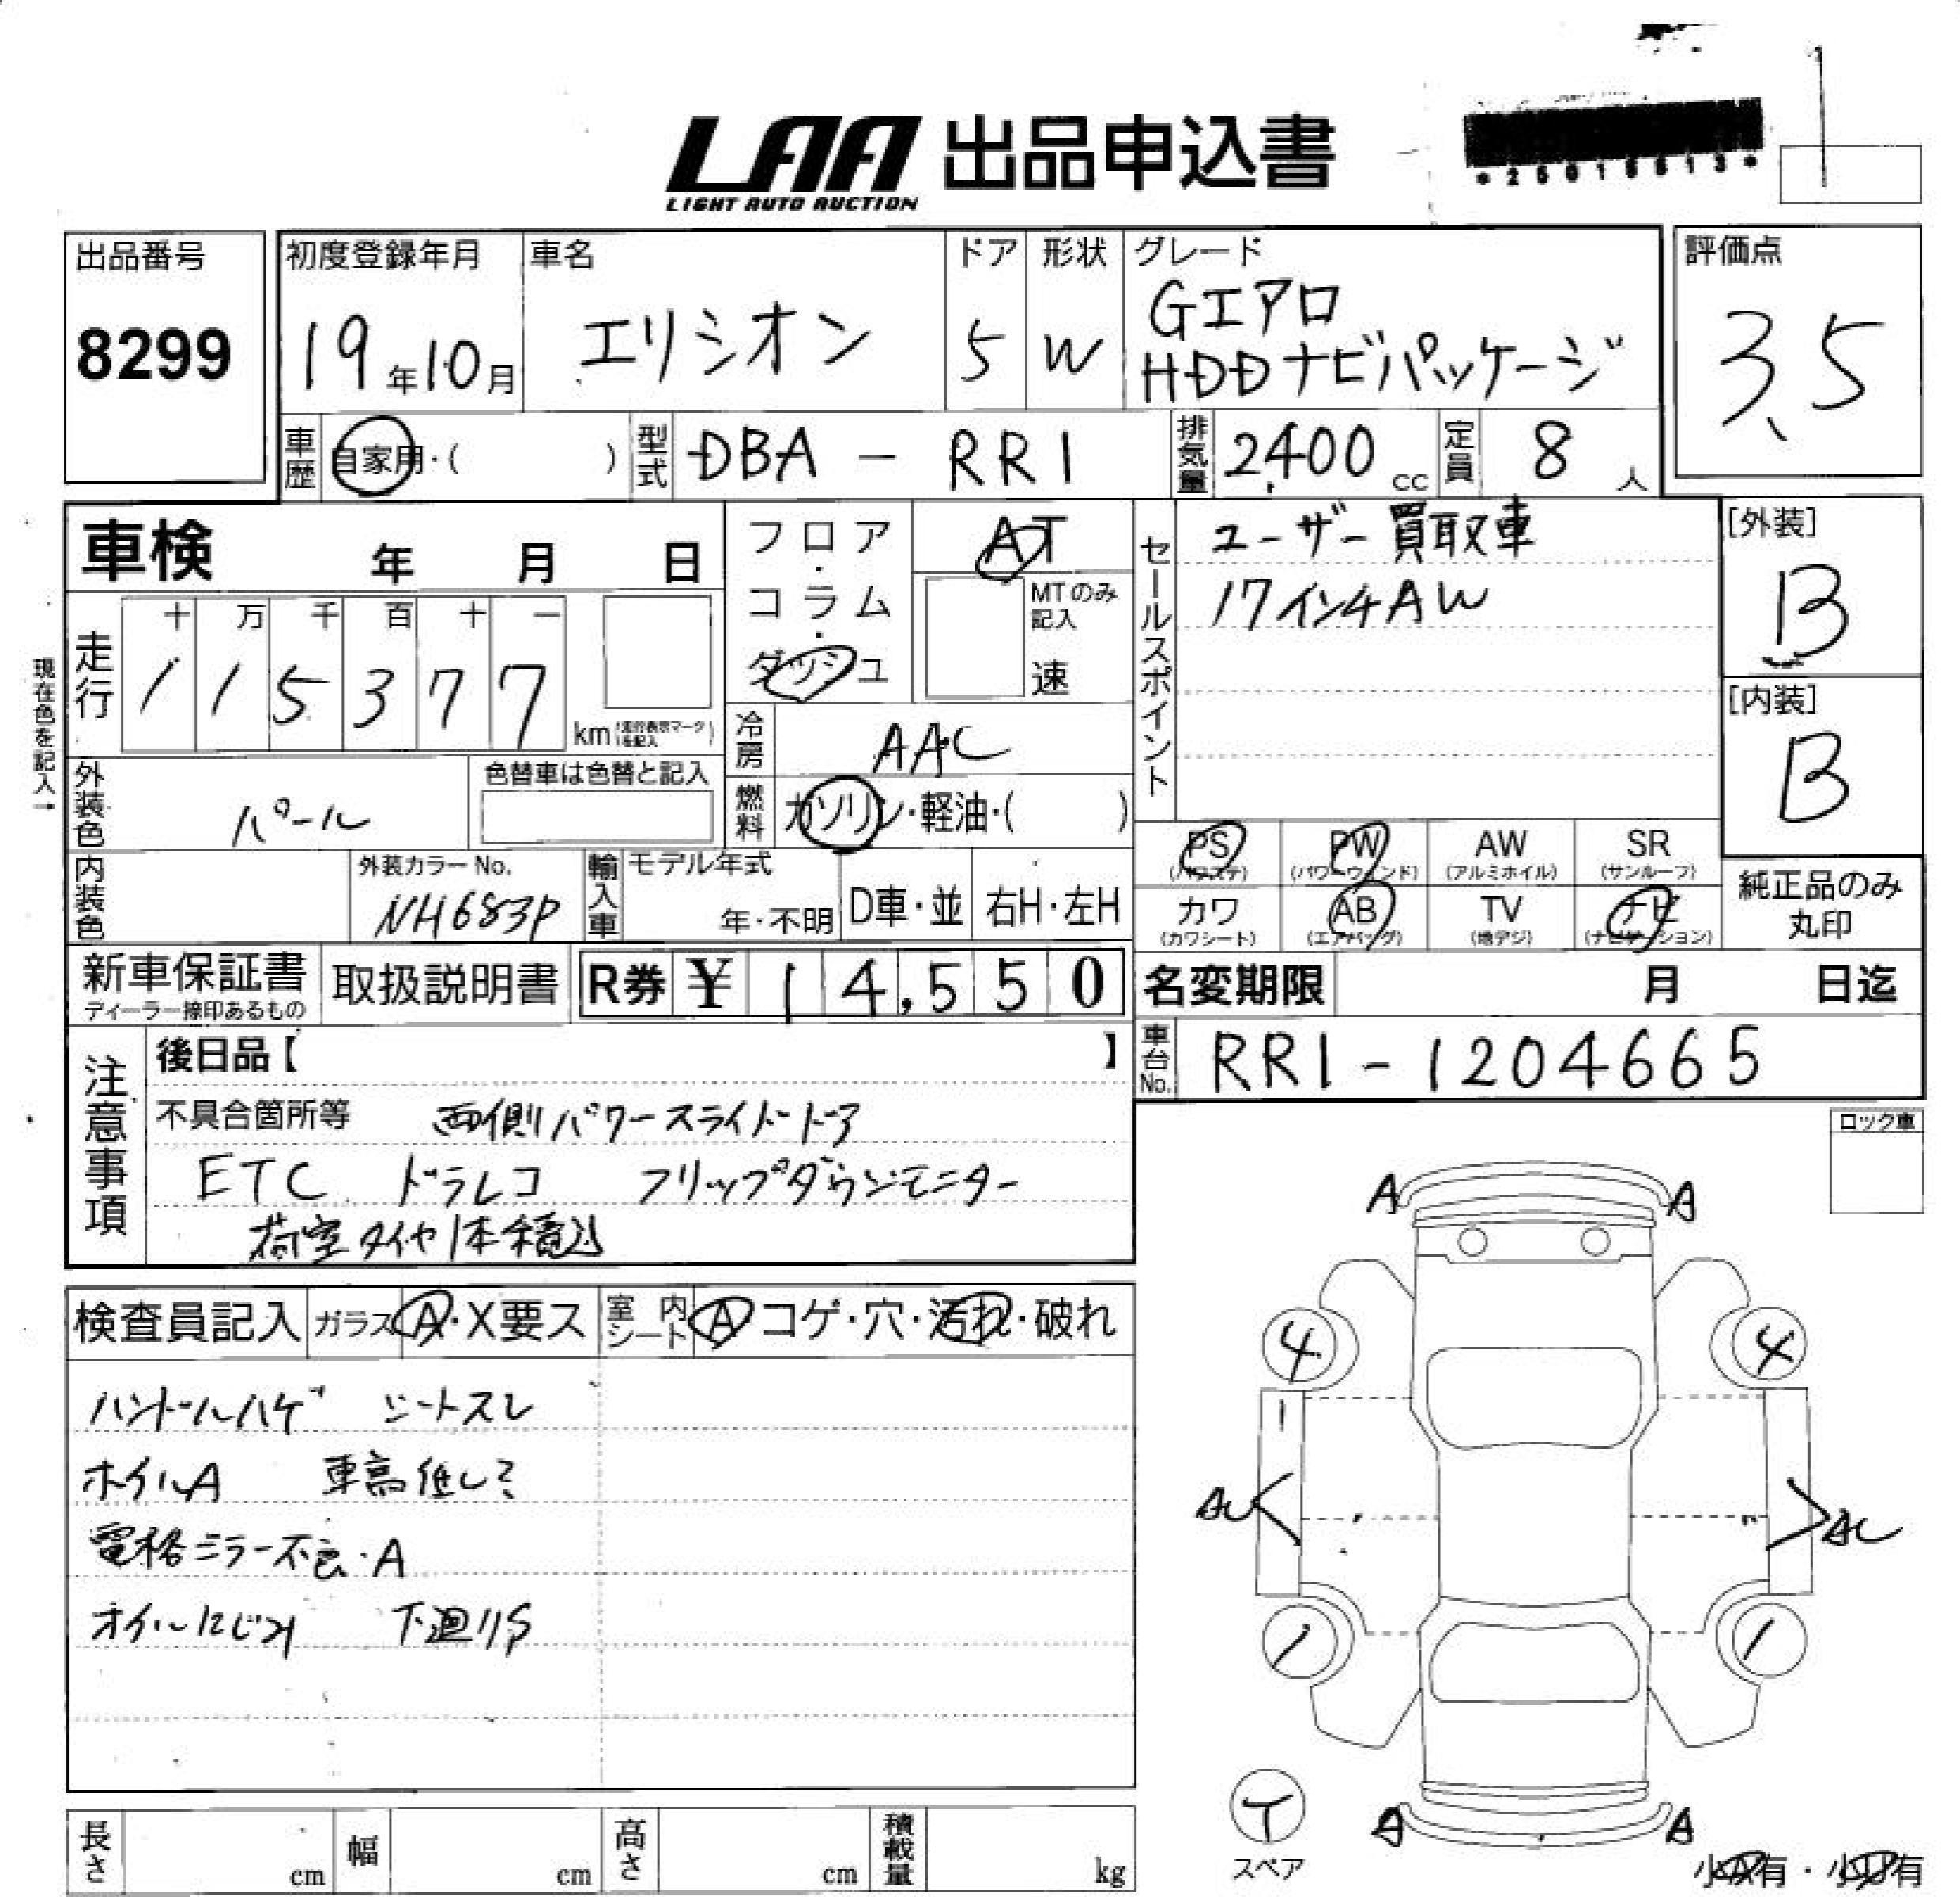 LAA 出品申込書
LIGHT AUTO AUCTION
出品番号
8299
初度登録年月
19年10月
車名
エリシオン
ドア
5
形状
W
グレード
Gエアロ
HDDナビパッケージ
評価点
3.5
車歴
自家用・( )
型式
DBA - RR1
排気量
2,400 cc
定員
8人
車検 年 月 日
フロア・コラム・ダッシュ
AT
MTのみ記入
速
セールスポイント
ユーザー買取車
17インチAW
[外装]
B
[内装]
B
現在色を記入→
走行
十 万 千 百 十 一
1 1 5 3 7 7
km (走行表示マークを記入)
冷房
AAC
外装色
パール
色替車は色替と記入
燃料
ガソリン・軽油・( )
内装色
外装カラーNo.
NH683P
輸入車
モデル年式
年・不明
D車・並
右H・左H
PS (パワステ)
PW (パワーウィンド)
AW (アルミホイル)
SR (サンルーフ)
カワ (カワシート)
AB (エアバッグ)
TV (地デジ)
ナビ (ナビゲーション)
純正品のみ丸印
新車保証書
ディーラー捺印あるもの
取扱説明書
R券 ¥ 14,550
名変期限 月 日迄
車台No.
RR1-1204665
注意事項
後日品【 】
不具合箇所等 両側パワースライドドア
ETC ドラレコ フリップダウンモニター
荷室タイヤ1本積込
ロック車
検査員記入
ガラス A・X要ス
室内シート A コゲ・穴・汚れ・破れ
ハンドルハゲ シートスレ
ホイルA 車高低し?
電格ミラー不良・A
オイルにじみ 下廻りS
A A
4 4
AU AU
1 1
A A
T
スペア
小A有・小U有
長さ cm
幅 cm
高さ cm
積載量 kg